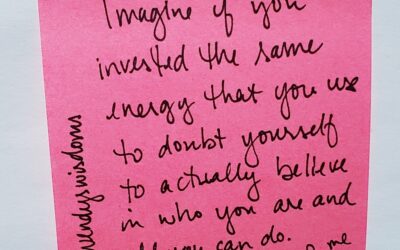 Imagine if you
invested the same
energy that you use
to doubt yourself
to actually believe
in who you are and
you can do.
me
wendyswisdoms